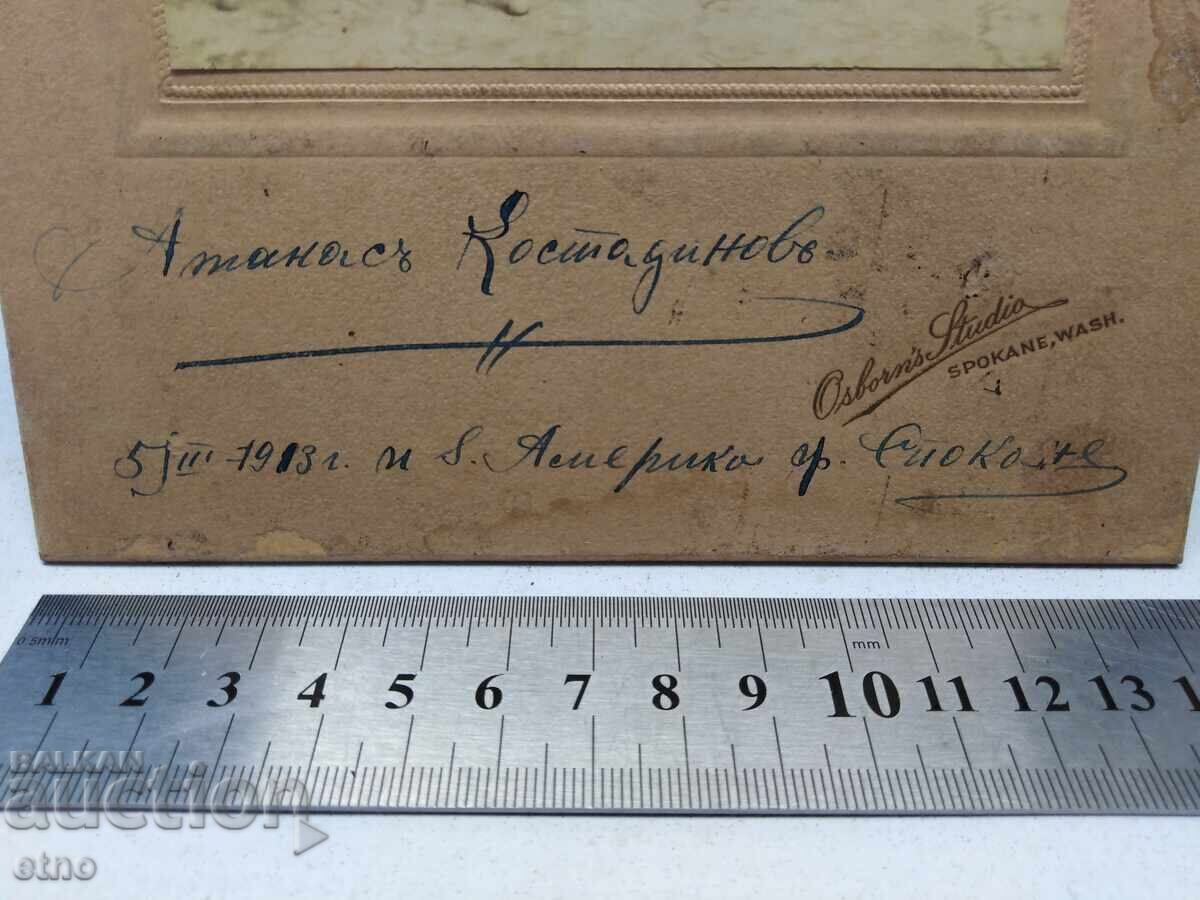 Атанасъ Костадиновъ
Osborn's Studio
SPOKANE, WASH.
5/III-1913г. Америка гр. Спокане
0.5m/m
mm
1 2 3 4 5 6 7 8 9 10 11 12 13 1
BALKAN
auction
etno